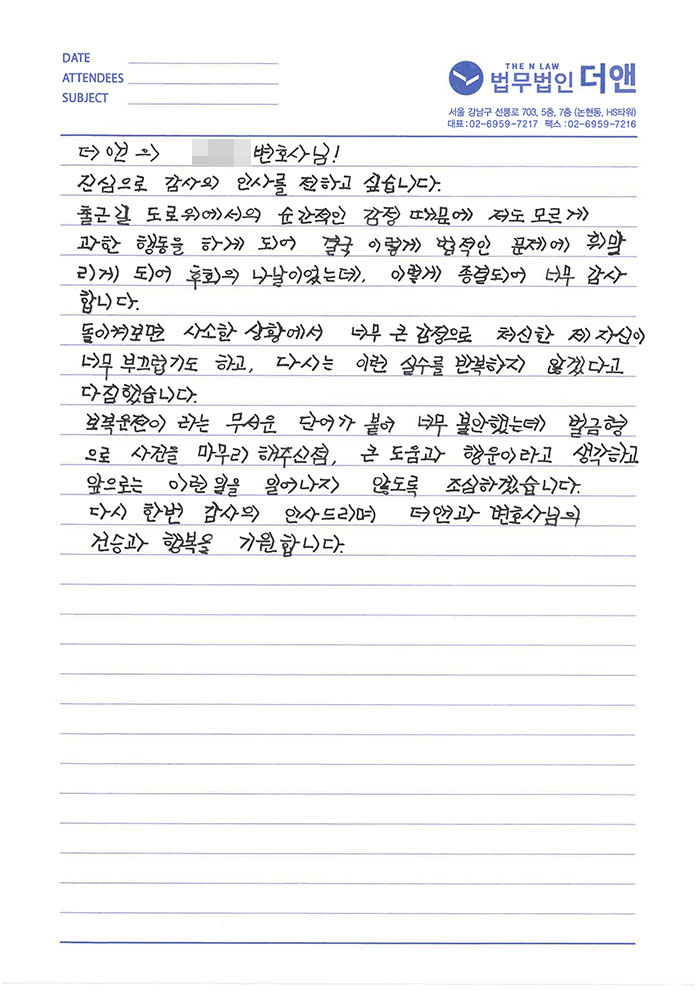 DATE
ATTENDEES
SUBJECT
THE N LAW
법무법인 더앤
서울 강남구 선릉로 703, 5층, 7층 (논현동, HS타워)
대표:02-6959-7217 팩스:02-6959-7216
더앤으 변호사님!
진심으로 감사의 인사를 전하고 싶습니다.
출근길 도로위에서의 순간적인 감정 때문에 저도 모르게
과한 행동을 하게 되어 결국 이렇게 법적인 문제에 휘말
리게 되어 후회의 나날이었는데, 이렇게 종결되어 너무 감사
합니다.
돌이켜보면 사소한 상황에서 너무 큰 감정으로 처신한 제 자신이
너무 부끄럽기도 하고, 다시는 이런 실수를 반복하지 않겠다고
다짐했습니다.
보복운전이 라는 무서운 단어가 붙어 너무 불안했는데 벌금형
으로 사건을 마무리 해주신점, 큰 도움과 행운이라고 생각하고
앞으로는 이런 일을 일어나지 않도록 조심하겠습니다.
다시 한번 감사의 인사드리며 더앤과 변호사님의
건승과 행복을 기원합니다.